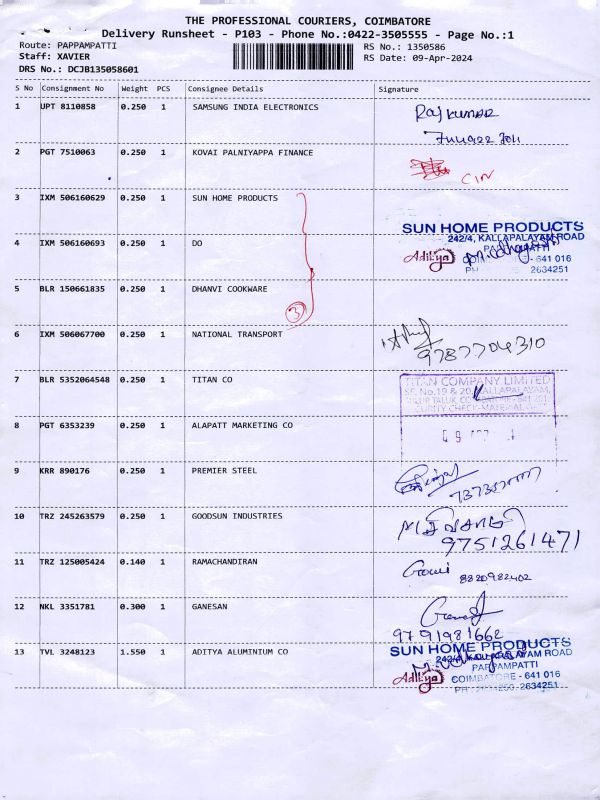 THE PROFESSIONAL COURIERS, COIMBATORE
Delivery Runsheet - P103 - Phone No.:0422-3505555 - Page No.:1
Route: PAPPAMPATTI RS No.: 1350586
Staff: XAVIER RS Date: 09-Apr-2024
DRS No.: DCJB135058601
S No Consignment No Weight PCS Consignee Details Signature
1 UPT 8110858 0.250 1 SAMSUNG INDIA ELECTRONICS Rajkumar
2 PGT 7510063 0.250 1 KOVAI PALNIYAPPA FINANCE
3 IXM 506160629 0.250 1 SUN HOME PRODUCTS
SUN HOME PRODUCTS
242/4, KALLAPALAYAM ROAD
4 IXM 506160693 0.250 1 DO
PAPPAMPATTI
Aditya - 641 016
2634251
5 BLR 150661835 0.250 1 DHANVI COOKWARE
3
6 IXM 506067700 0.250 1 NATIONAL TRANSPORT
9787704310
7 BLR 5352064548 0.250 1 TITAN CO
TITAN COMPANY LIMITED
SF. No.19 & 20, KALLAPALAYAM,
8 PGT 6353239 0.250 1 ALAPATT MARKETING CO
9 KRR 890176 0.250 1 PREMIER STEEL
10 TRZ 245263579 0.250 1 GOODSUN INDUSTRIES
9751261471
11 TRZ 125005424 0.140 1 RAMACHANDIRAN Gowri 8220982402
12 NKL 3351781 0.300 1 GANESAN
9791981662
13 TVL 3248123 1.550 1 ADITYA ALUMINIUM CO
SUN HOME PRODUCTS
242/4, KALLAPALAYAM ROAD
PAPPAMPATTI
Aditya COIMBATORE - 641 016
2634251